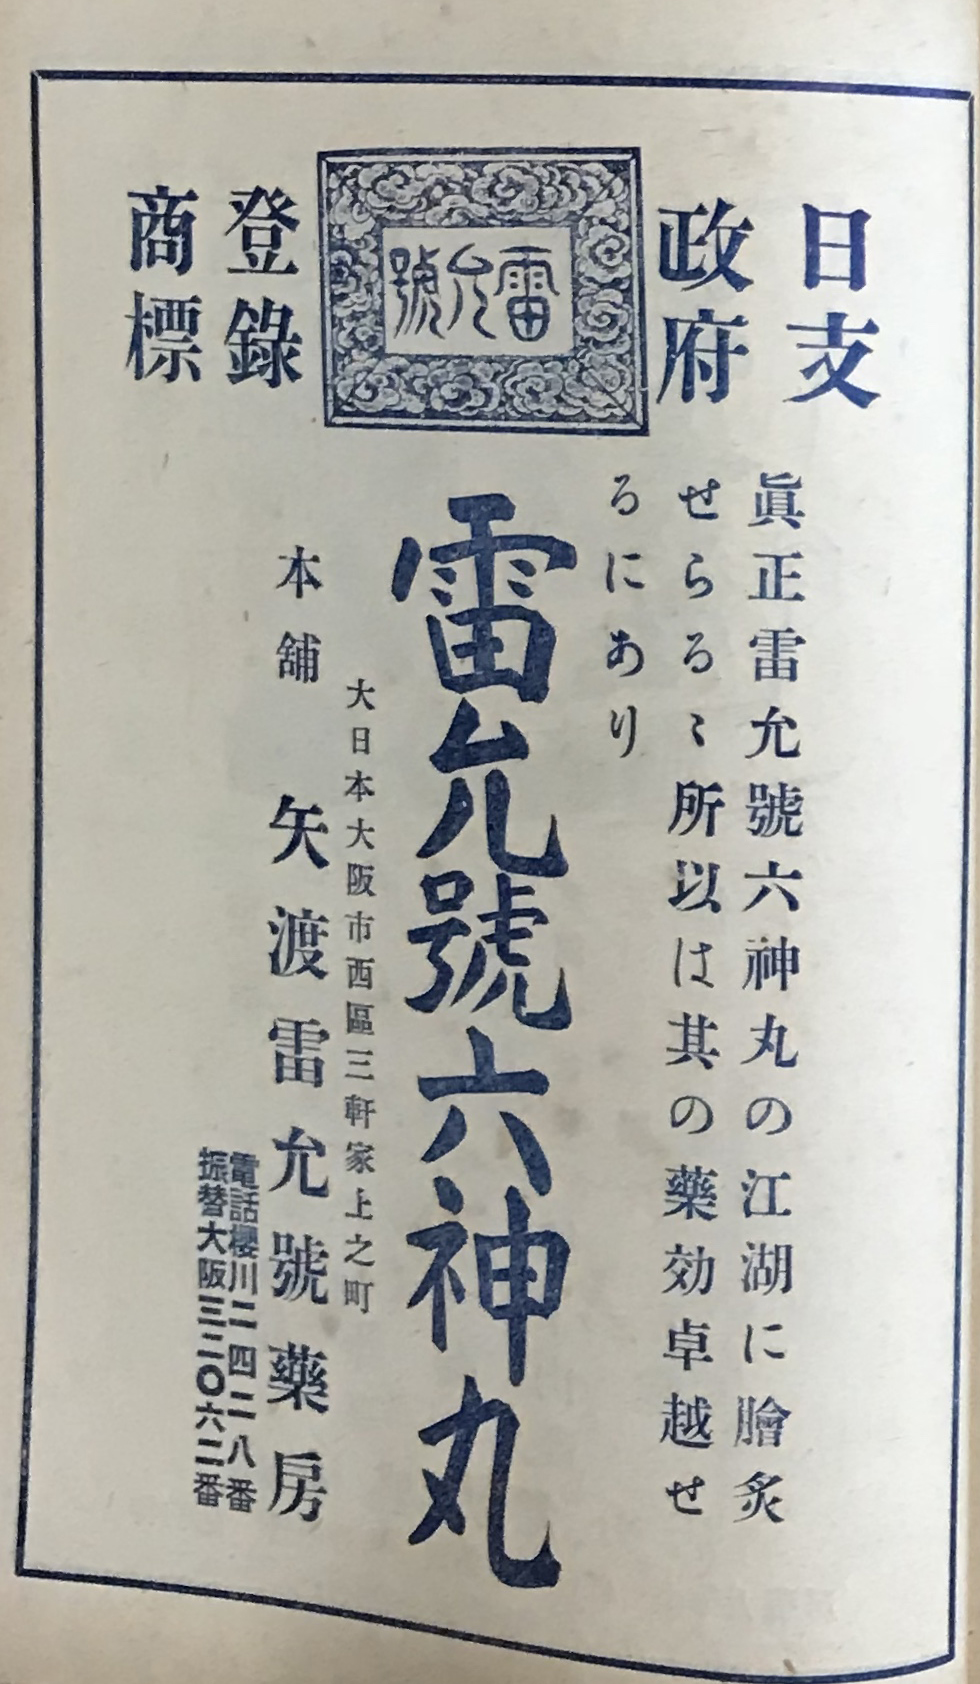 日支
政府
雷允號
登錄
商標
眞正雷允號六神丸の江湖に膾炙
せらるゝ所以は其の藥効卓越せ
るにあり
雷允號六神丸
大日本大阪市西區三軒家上之町
本舖 矢渡雷允號藥房
電話櫻川二四二八番
振替大阪三二〇六二番